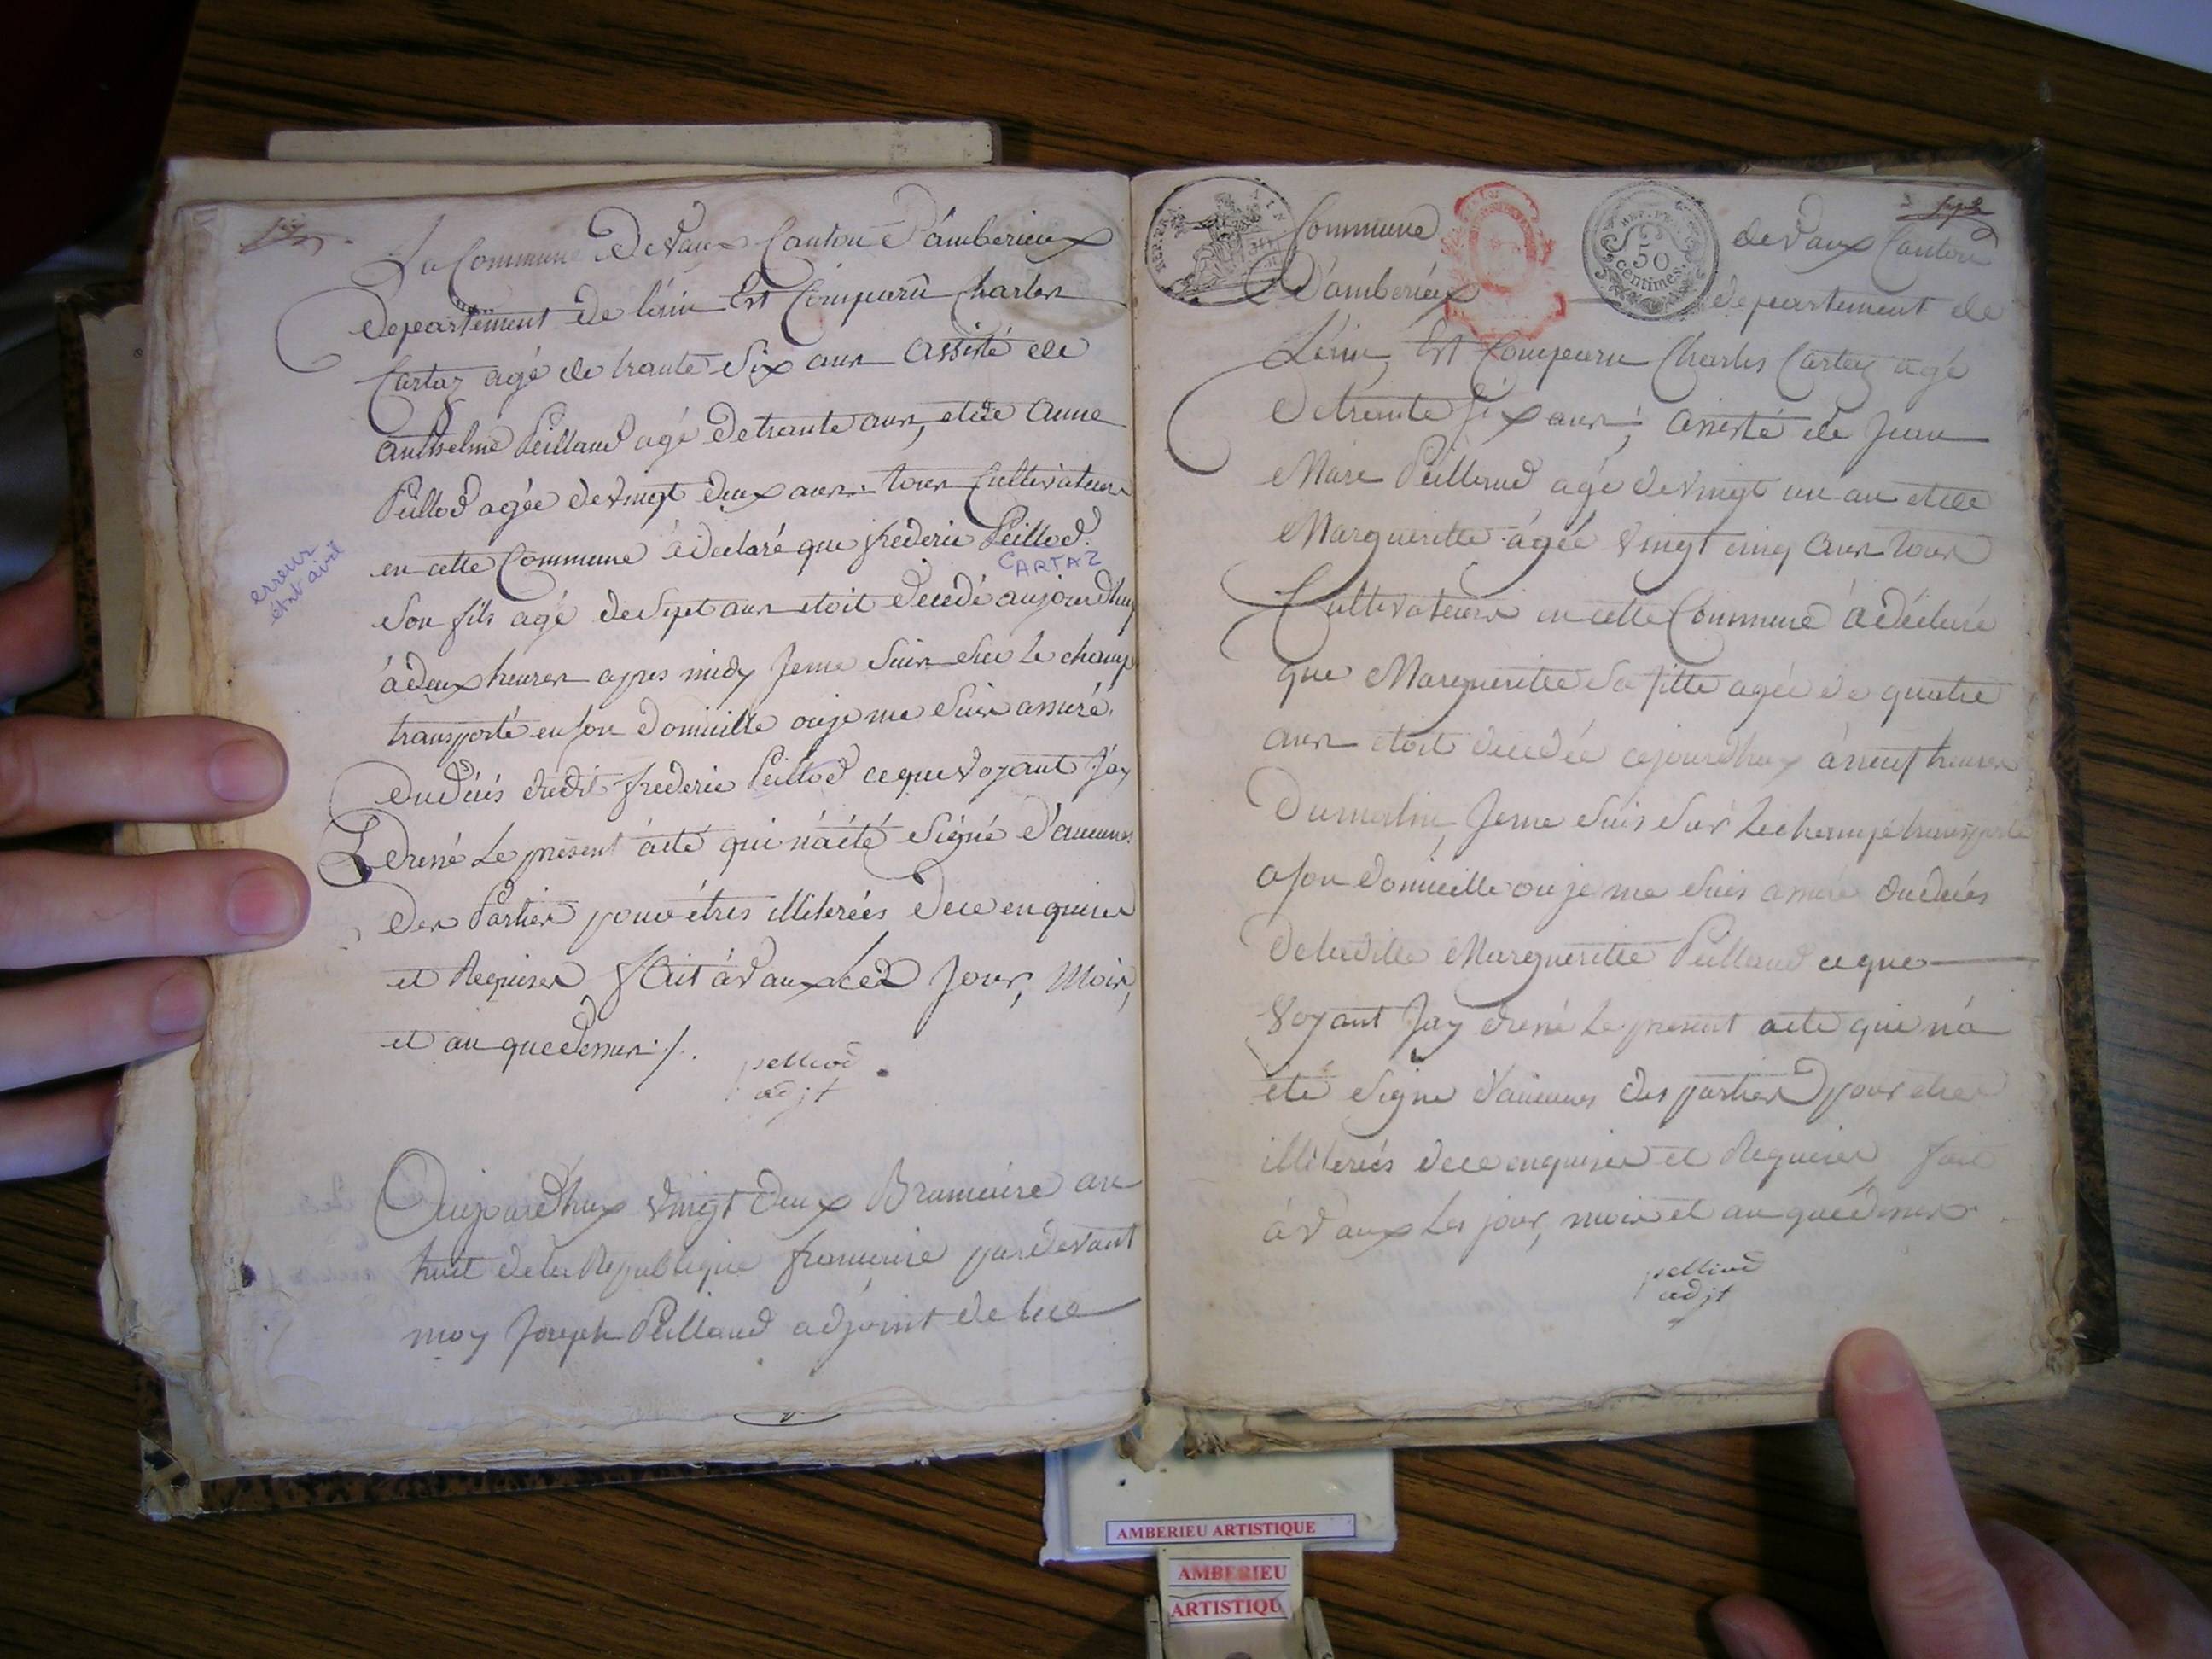 La Commune De Vaux Canton D'amberieux
departement de l'ain Est Comparû Charles
Cartaz agé de trante Six ans Assisté de
Anthelme Peilland agé de trante ans, et de Anne
Peillod agée de vingt deux ans tous Cultivateurs
en cette Commune à declaré que frederic Peillod
CARTAZ
erreur
état civil
Son fils agé de Sept ans etoit decedé aujourdhuy
à deux heures apres midy Jeme Suis Sur le champ
transporté en son domicille ou je me Suis assuré
du décés dudit frederic Peillod ce que voyant J'ay
Dressé Le present acté qui n'a été Signé d'aucunes
Des Parties pour étres illiterées de ce enquises
et Requises fait à Vaux Les Jour, Mois,
et an que dessus ./.
pelliod
adjt
Aujourdhuy vingt deux Brumaire an
huit de la Republique francaise par devant
moy Joseph Peilland adjoint de la
REP. FRA.
Commune
REP. FRA.
50
centimes.
de Vaux Canton
D'amberieux
departement de
L'ain, Est Comparu Charles Cartaz agé
de trente Six ans, assisté de Jean
Marie Peilland agé de vingt un an et de
Margueritte agée vingt cinq ans tous
Cultivateurs en cette Commune à déclaré
que Marguerittee Sa fille agée de quatre
ans étoit decedée cejourdhuy à neuf heures
Du matin, Jeme Suis Sur Le champ transporté
a son domicille ou je me Suis assuré du décés
De laditte Marguerittee Peilland ce que
Voyant J'ay dressé Le present acte qui n'a
été Signé d'aucunes des parties pour etres
illiterées de ce enquises et Requises fait
à Vaux Les jour, mois et an que dessus
pelliod
adjt
AMBERIEU ARTISTIQUE
AMBERIEU
ARTISTIQU